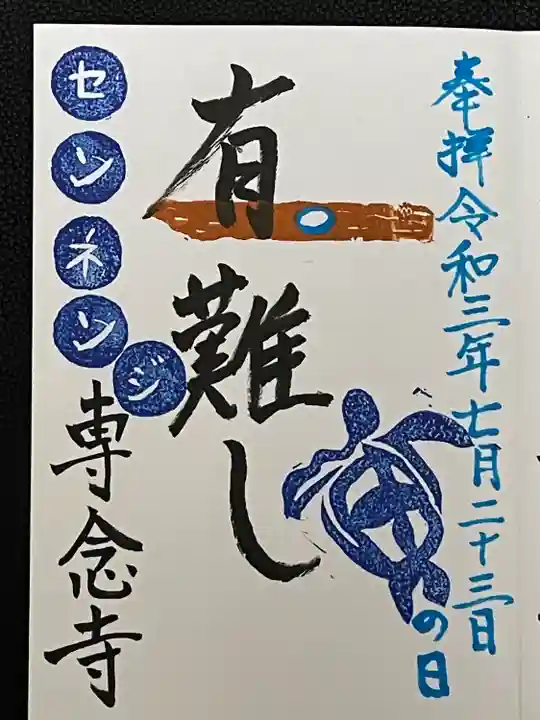 奉拝令和三年七月二十三日
海の日
有難し
センネンジ
専念寺